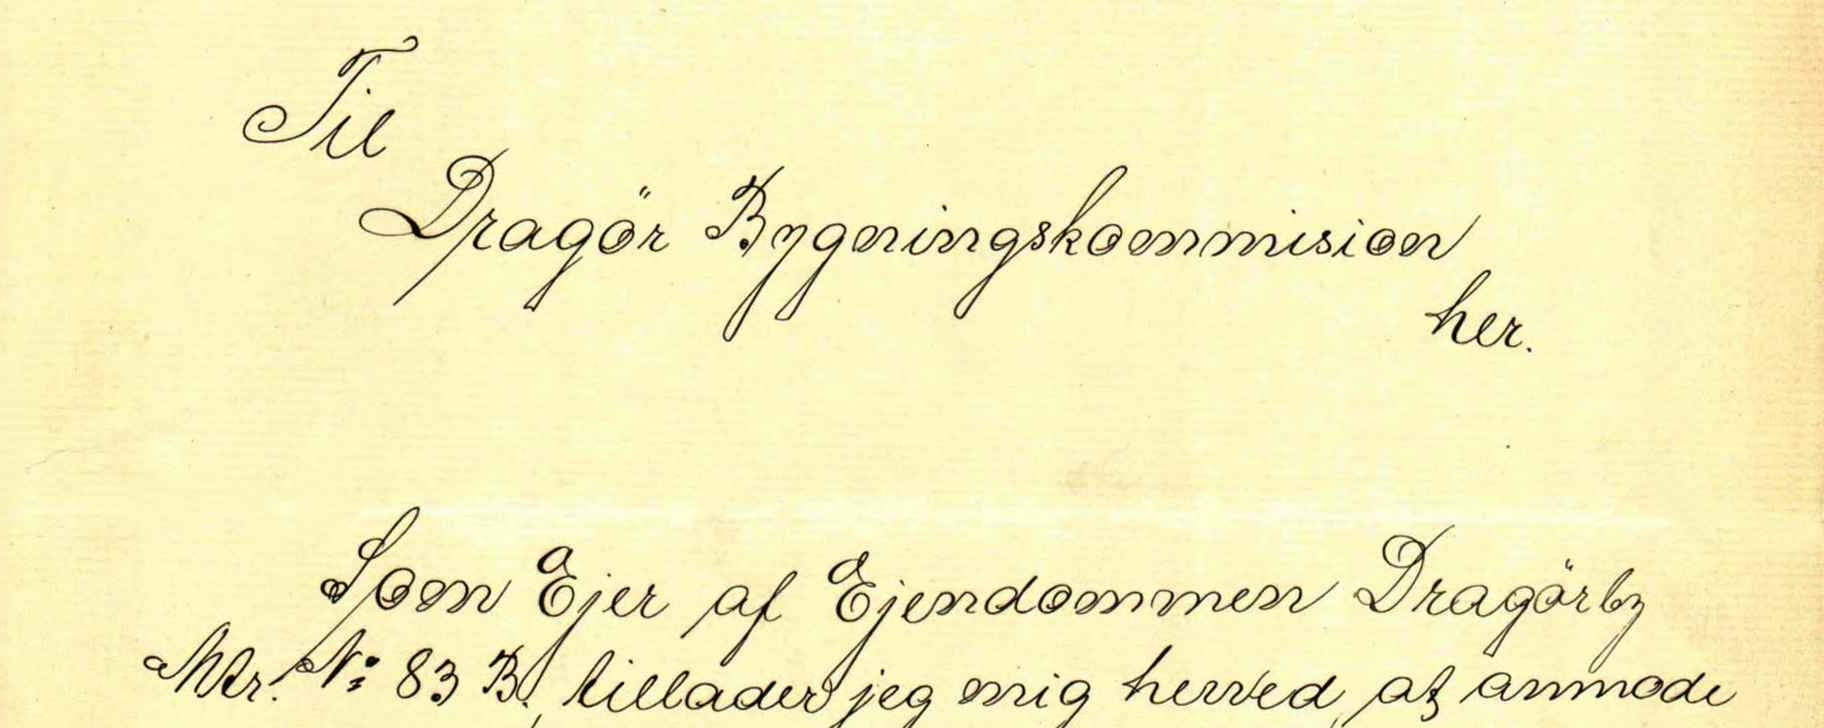 Til
Dragör Bygningskommision
her.
Som Ejer af Ejendommen Dragörby
Mtr. No 83 B, tillader jeg mig herved, at anmode